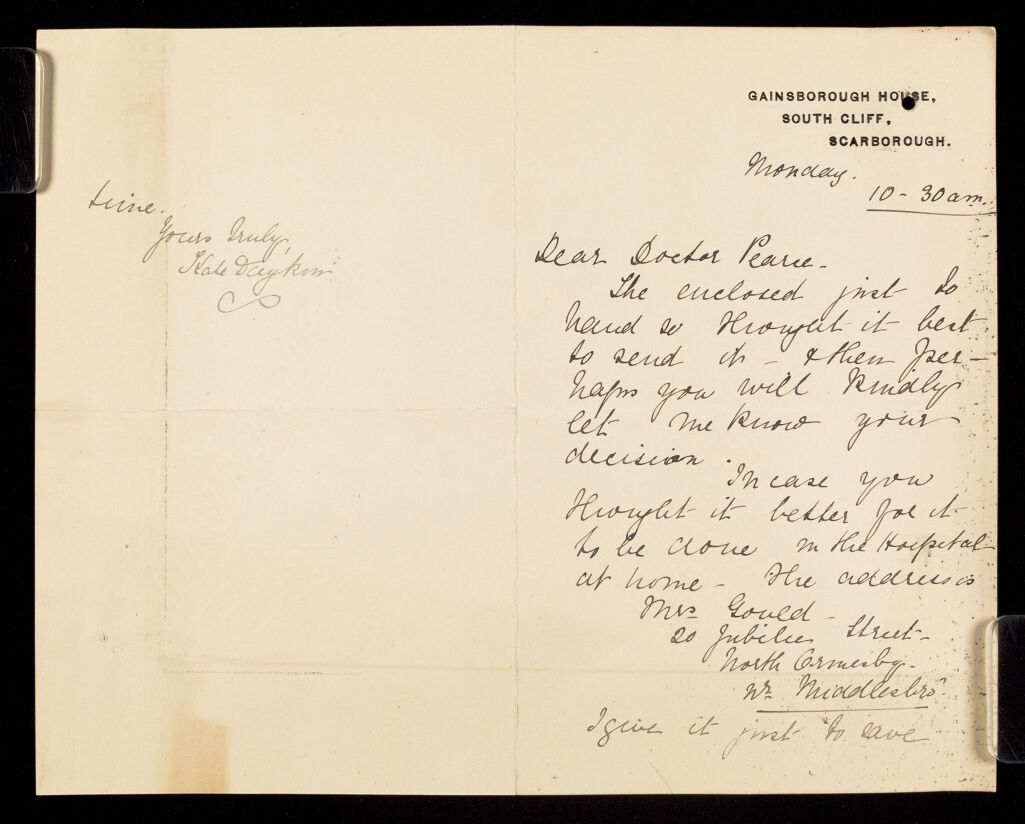 GAINSBOROUGH HOUSE,
SOUTH CLIFF,
SCARBOROUGH.
Monday.
10-30am.
Dear Doctor Pearce -
The enclosed just to
hand so thought it best
to send it - & then per-
haps you will kindly
let me know your
decision.
In case you
thought it better for it
to be done in the Hospital
at home - the address is
Mrs Gould -
20 Jubilee Street -
North Ormesby -
Nr. Middlesbro'
I give it just to save
time.
Yours truly,
Kate Daykin